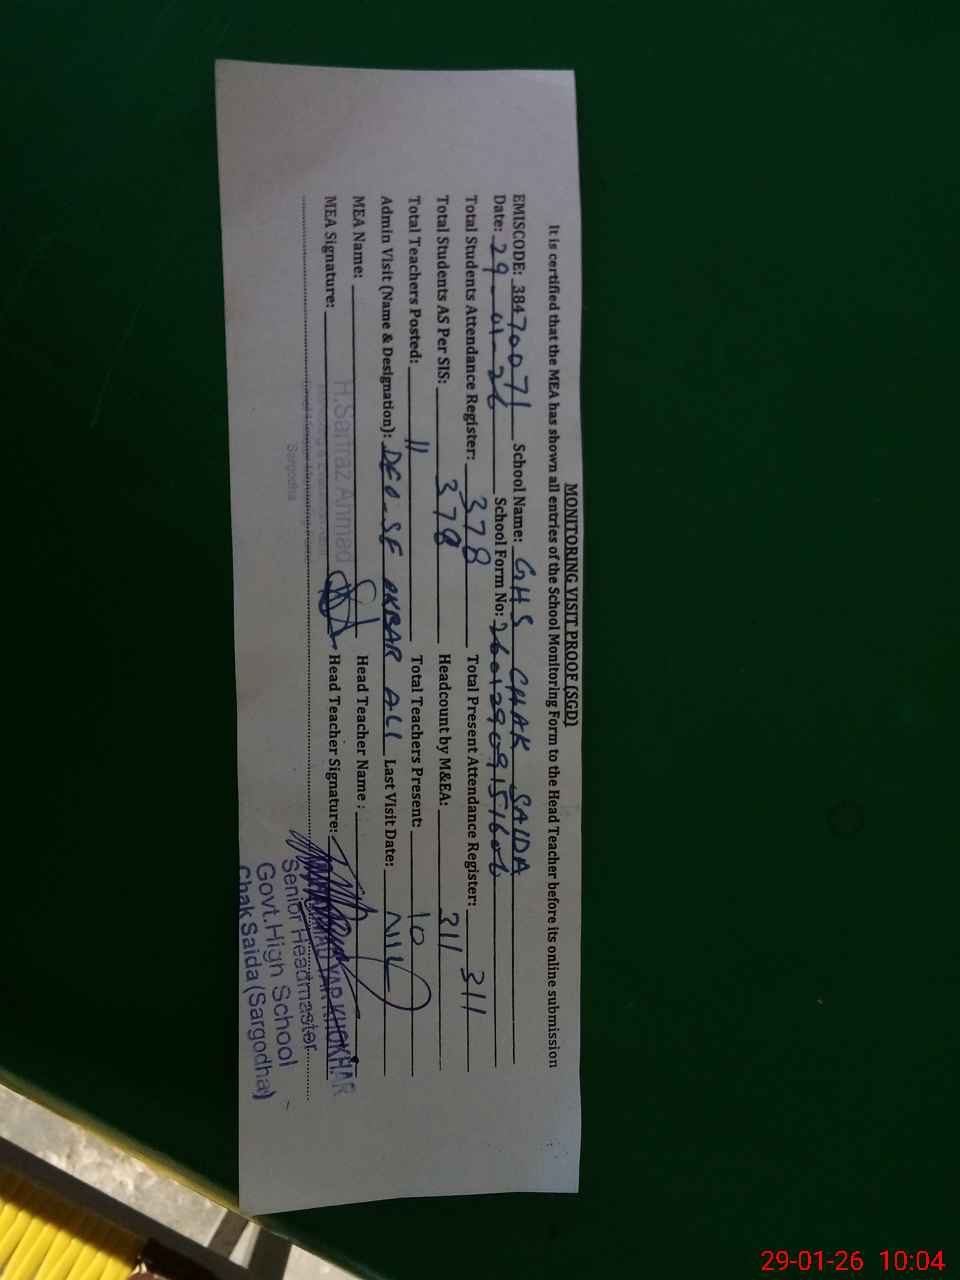 MONITORING VISIT PROOF (SGD)
It is certified that the MEA has shown all entries of the School Monitoring Form to the Head Teacher before its online submission
EMISCODE: 38470071 School Name: GHS CHAK SAIDA
Date: 29-01-26 School Form No: 26012909151606
Total Students Attendance Register: 378 Total Present Attendance Register: 311
Total Students AS Per SIS: 378 Headcount by M&EA: 311
Total Teachers Posted: 11 Total Teachers Present: 10
Admin Visit (Name & Designation): DEO-SE AKBAR ALI Last Visit Date: NIL
MEA Name: H.Sarfraz Ahmad Head Teacher Name :
MEA Signature: Head Teacher Signature:
Sargodha
YAR KHOKHAR
Senior Headmaster
Govt.High School
Chak Saida (Sargodha)
29-01-26 10:04